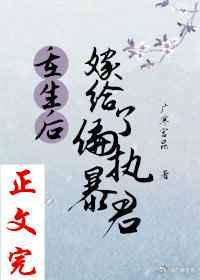 重生后
嫁给了偏执暴君
广寒宫 著
正文完